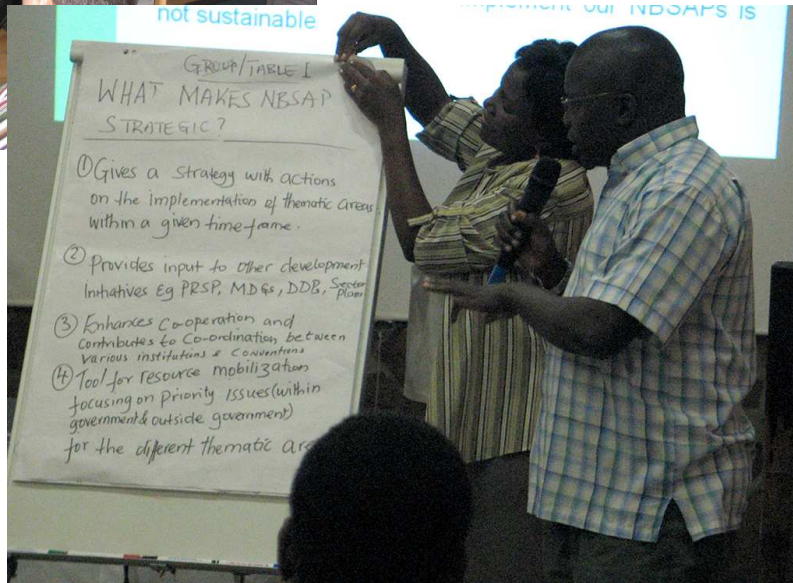 not sustainable
implement our NBSAPs is
GROUP/TABLE I
WHAT MAKES NBSAP
STRATEGIC?
① Gives a strategy with actions
on the implementation of thematic areas
within a given time-frame.
② Provides input to other development
Initiatives Eg PRSP, MDGs, DDP, Sector
plans
③ Enhances Co-operation and
contributes to Co-ordination between
various institutions & Conventions
④ Tool for resource mobilization
focusing on priority issues (within
government & outside government)
for the different thematic are